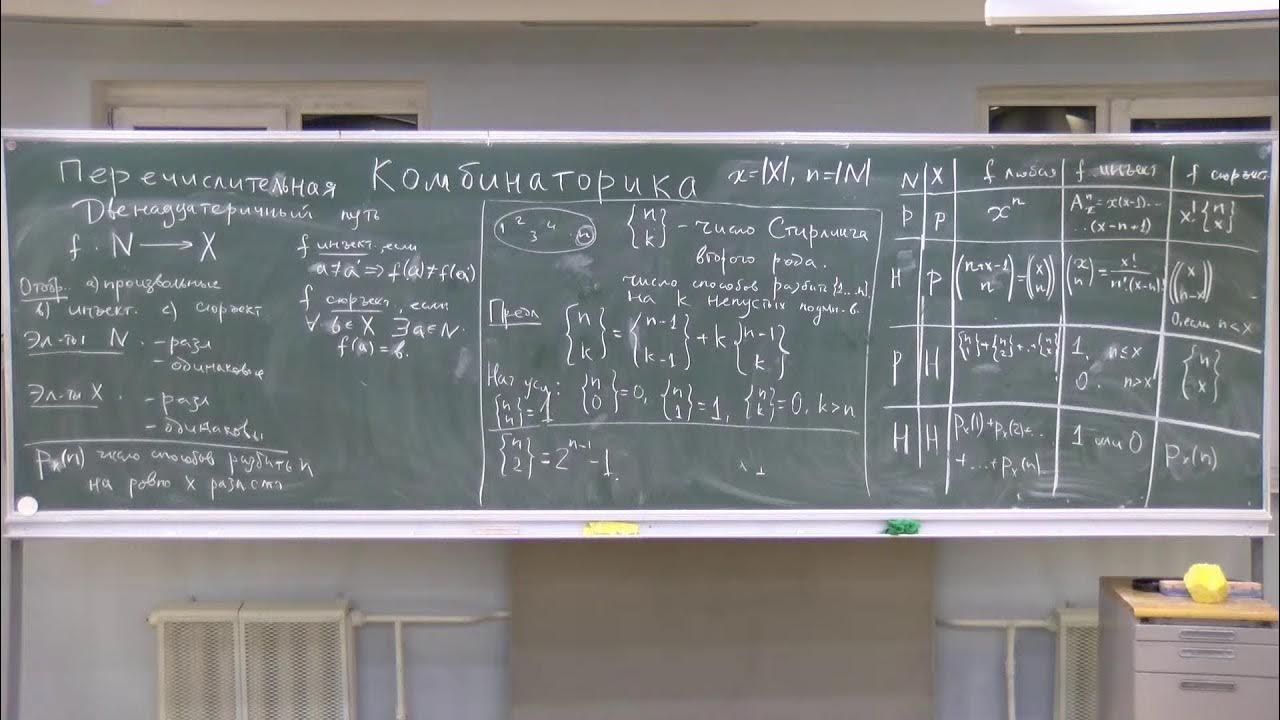 Перечислительная Комбинаторика x=|X|, n=|N|
Двенадцатеричный путь
f: N ⟶ X
Отобр. a) произвольные
b) инъект. c) сюръект
Эл-ты N. - разл
- одинаковые
Эл-ты X. - разл
- одинаковы
pₓ(n) число способов разбить n
на ровно x
f инъект., если
a≠a' ⟹ f(a)≠f(a')
f сюръект., если
∀ b∈X ∃ a∈N.
f(a)=b.
1 2 3 4 . n
{n k} - число Стирлинга
второго рода.
число способов разбить {1...n}
на k непустых подмн-в.
Предл
{n k} = {n-1 k-1} + k {n-1 k}
Нач усл: {n 0}=0, {n 1}=1, {n k}=0, k>n
{n n}=1
{n 2} = 2ⁿ⁻¹-1.
N X f любая f инъект f сюръект.
P P xⁿ Aₓⁿ=x(x-1)... ..(x-n+1) x!{n x}
H P (n+x-1 n)=((x n)) (x n)=x!/n!(x-n)! ((x n-x))
0, если n<x
P H {n 1}+{n 2}+..+{n x} 1, n≤x {n x}
0. n>x
H H pₓ(1)+pₓ(2)+... 1 или 0 pₓ(n)
+...+pₓ(n)